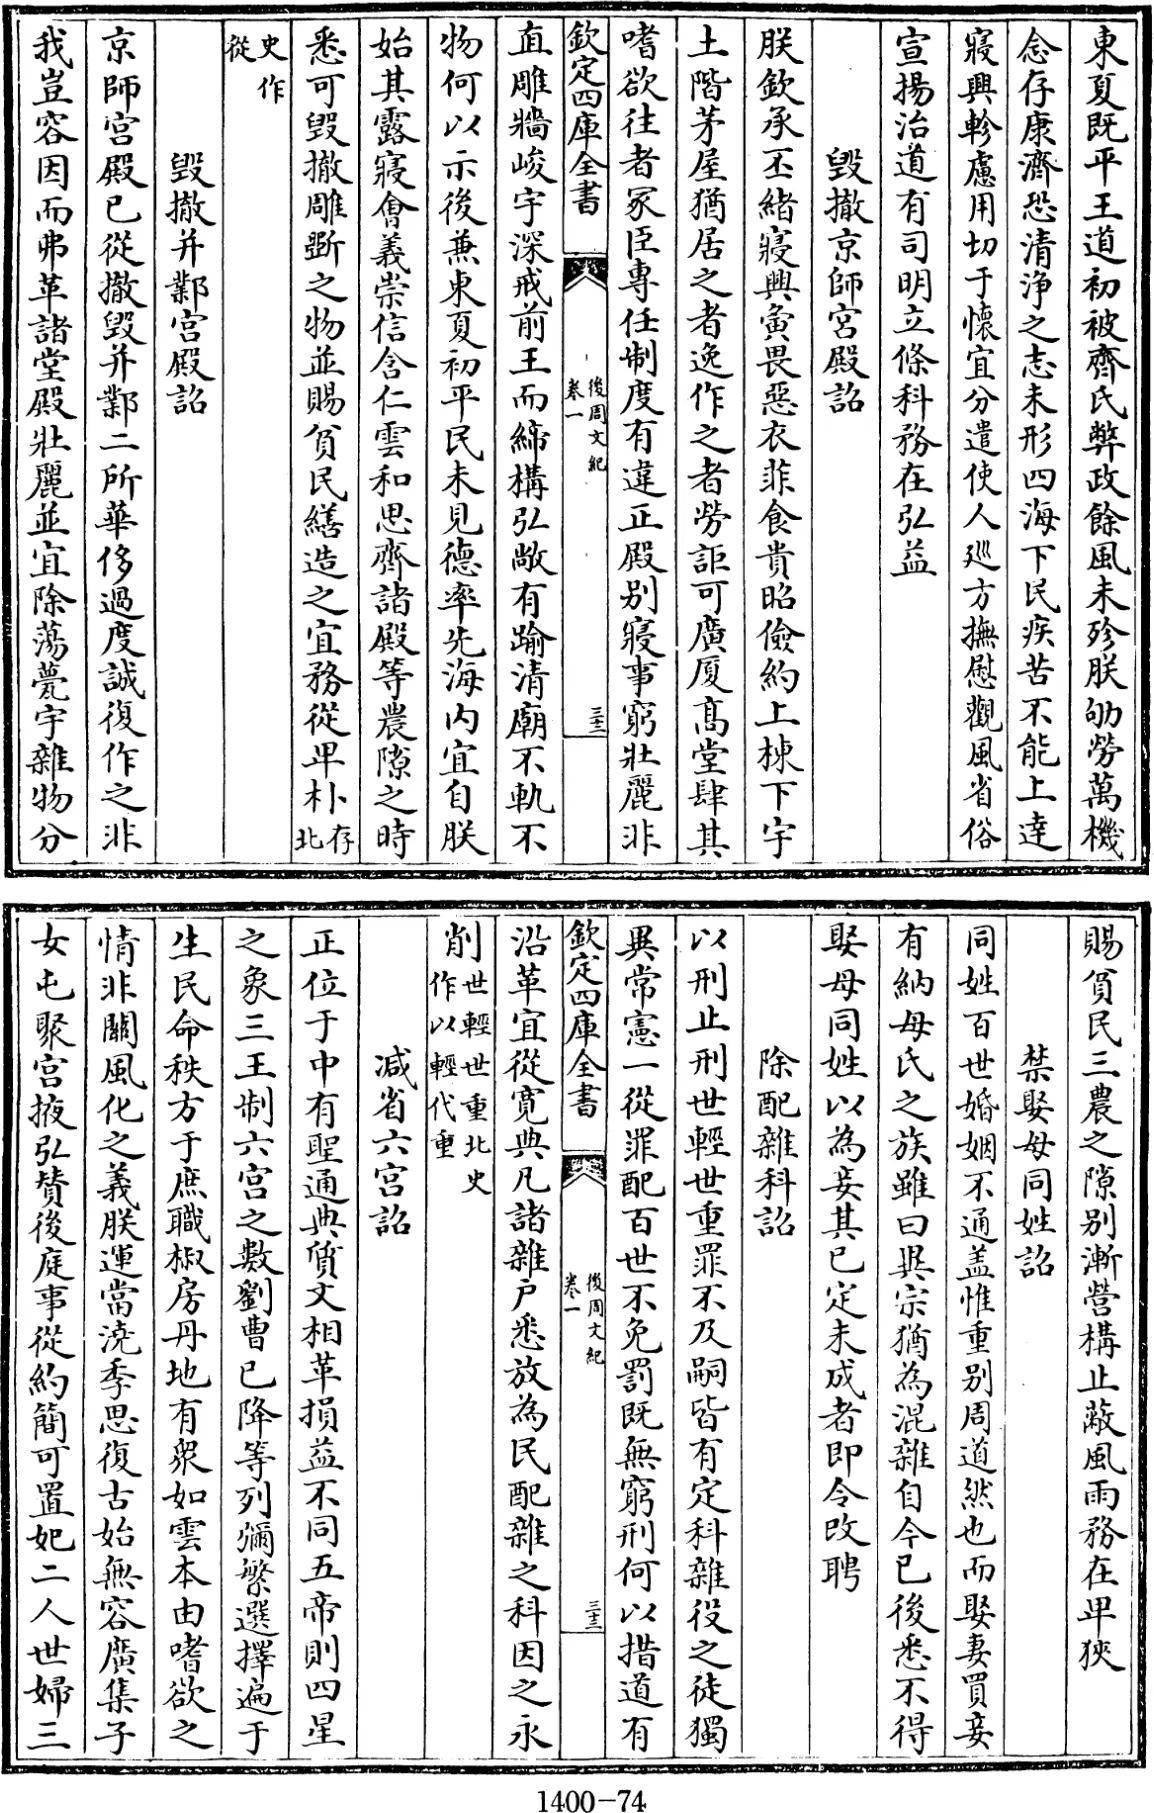 東夏既平王道初被齊氏弊政餘風未殄朕劬勞萬機
念存康濟恐清浄之志未形四海下民疾苦不能上達
寢興軫慮用切于懷宜分遣使人廵方撫慰觀風省俗
宣揚治道有司明立條科務在弘益
毀撤京師宫殿詔
朕欽承丕緒寢興寅畏惡衣菲食貴昭儉約上棟下宇
土階茅屋猶居之者逸作之者勞詎可廣厦髙堂肆其
嗜欲往者冢臣專任制度有違正殿别寢事窮壯麗非
欽定四庫全書
後周文紀
卷一
三十二
直雕牆峻宇深戒前王而締構弘敞有踰清廟不軌不
物何以示後兼東夏初平民未見德率先海内宜自朕
始其露寢㑹義崇信含仁雲和思齊諸殿等農隙之時
悉可毀撤雕斵之物並賜貧民繕造之宜務從卑朴存北
史作
從
毀撤并鄴宫殿詔
京師宫殿已從撤毀并鄴二所華侈過度誠復作之非
我豈容因而弗革諸堂殿壯麗並宜除蕩甍宇雜物分
賜貧民三農之隙别漸營構止蔽風雨務在卑狹
禁娶母同姓詔
同姓百世婚姻不通盖惟重别周道然也而娶妻買妾
有納母氏之族雖曰異宗猶為混雜自今已後悉不得
娶母同姓以為妾其已定未成者即令改聘
除配雜科詔
以刑止刑世輕世重罪不及嗣皆有定科雜役之徒獨
異常憲一從罪配百世不免罰既無窮刑何以措道有
欽定四庫全書
後周文紀
卷一
三十三
沿革宜從寛典凡諸雜户悉放為民配雜之科因之永
削世輕世重北史
作以輕代重
減省六宫詔
正位于中有聖通典質文相革損益不同五帝則四星
之象三王制六宫之數劉曹已降等列彌繁選擇遍于
生民命秩方于庶職椒房丹地有衆如雲本由嗜欲之
情非關風化之義朕運當澆季思復古始無容廣集子
女屯聚宫掖弘賛後庭事從約簡可置妃二人世婦三
1400-74